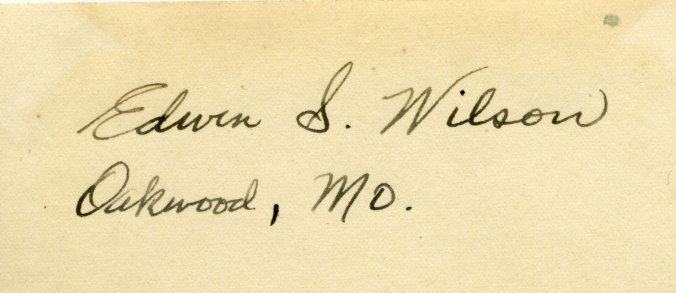 Edwin S. Wilson
Oakwood, Mo.